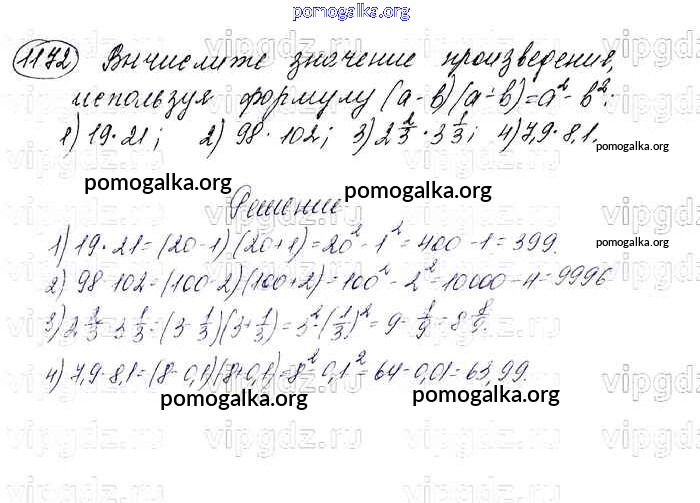 pomogalka.org
1172 Вычислите значение произведения,
используя формулу (a-b)(a+b)=a²-b²:
1) 19·21; 2) 98·102; 3) 2 2/3 · 3 1/3; 4) 7,9·8,1.
pomogalka.org
pomogalka.org
pomogalka.org
Решение
1) 19·21=(20-1)(20+1)=20²-1²=400-1=399.
pomogalka.org
2) 98·102=(100-2)(100+2)=100²-2²=10000-4=9996
3) 2 2/3 · 3 1/3=(3-1/3)(3+1/3)=3²-(1/3)²=9-1/9=8 8/9.
4) 7,9·8,1=(8-0,1)(8+0,1)=8²-0,1²=64-0,01=63,99.
pomogalka.org
pomogalka.org
vipgdz.ru
vipgdz.ru
vipgdz.ru